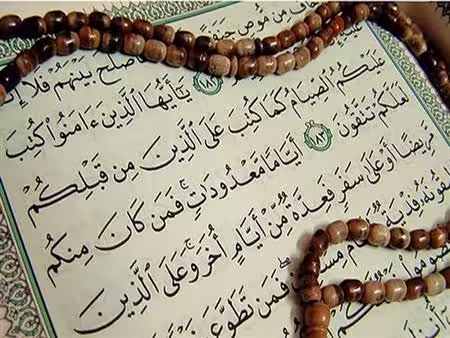 مِن مُّوصٍ
صْلَحَ بَيْنَهُمْ فَلَا
١٨٢ يَٰٓأَيُّهَا ٱلَّذِينَ ءَامَنُوا۟ كُتِبَ
عَلَيْكُمُ ٱلصِّيَامُ كَمَا كُتِبَ عَلَى ٱلَّذِينَ مِن قَبْلِكُمْ
لَعَلَّكُمْ تَتَّقُونَ ١٨٣ أَيَّامًا مَّعْدُودَٰتٍ ۚ فَمَن كَانَ مِنكُم
مَّرِيضًا أَوْ عَلَىٰ سَفَرٍ فَعِدَّةٌ مِّنْ أَيَّامٍ أُخَرَ ۚ وَعَلَى ٱلَّذِينَ
فِدْيَةٌ ۖ فَمَن تَطَوَّعَ